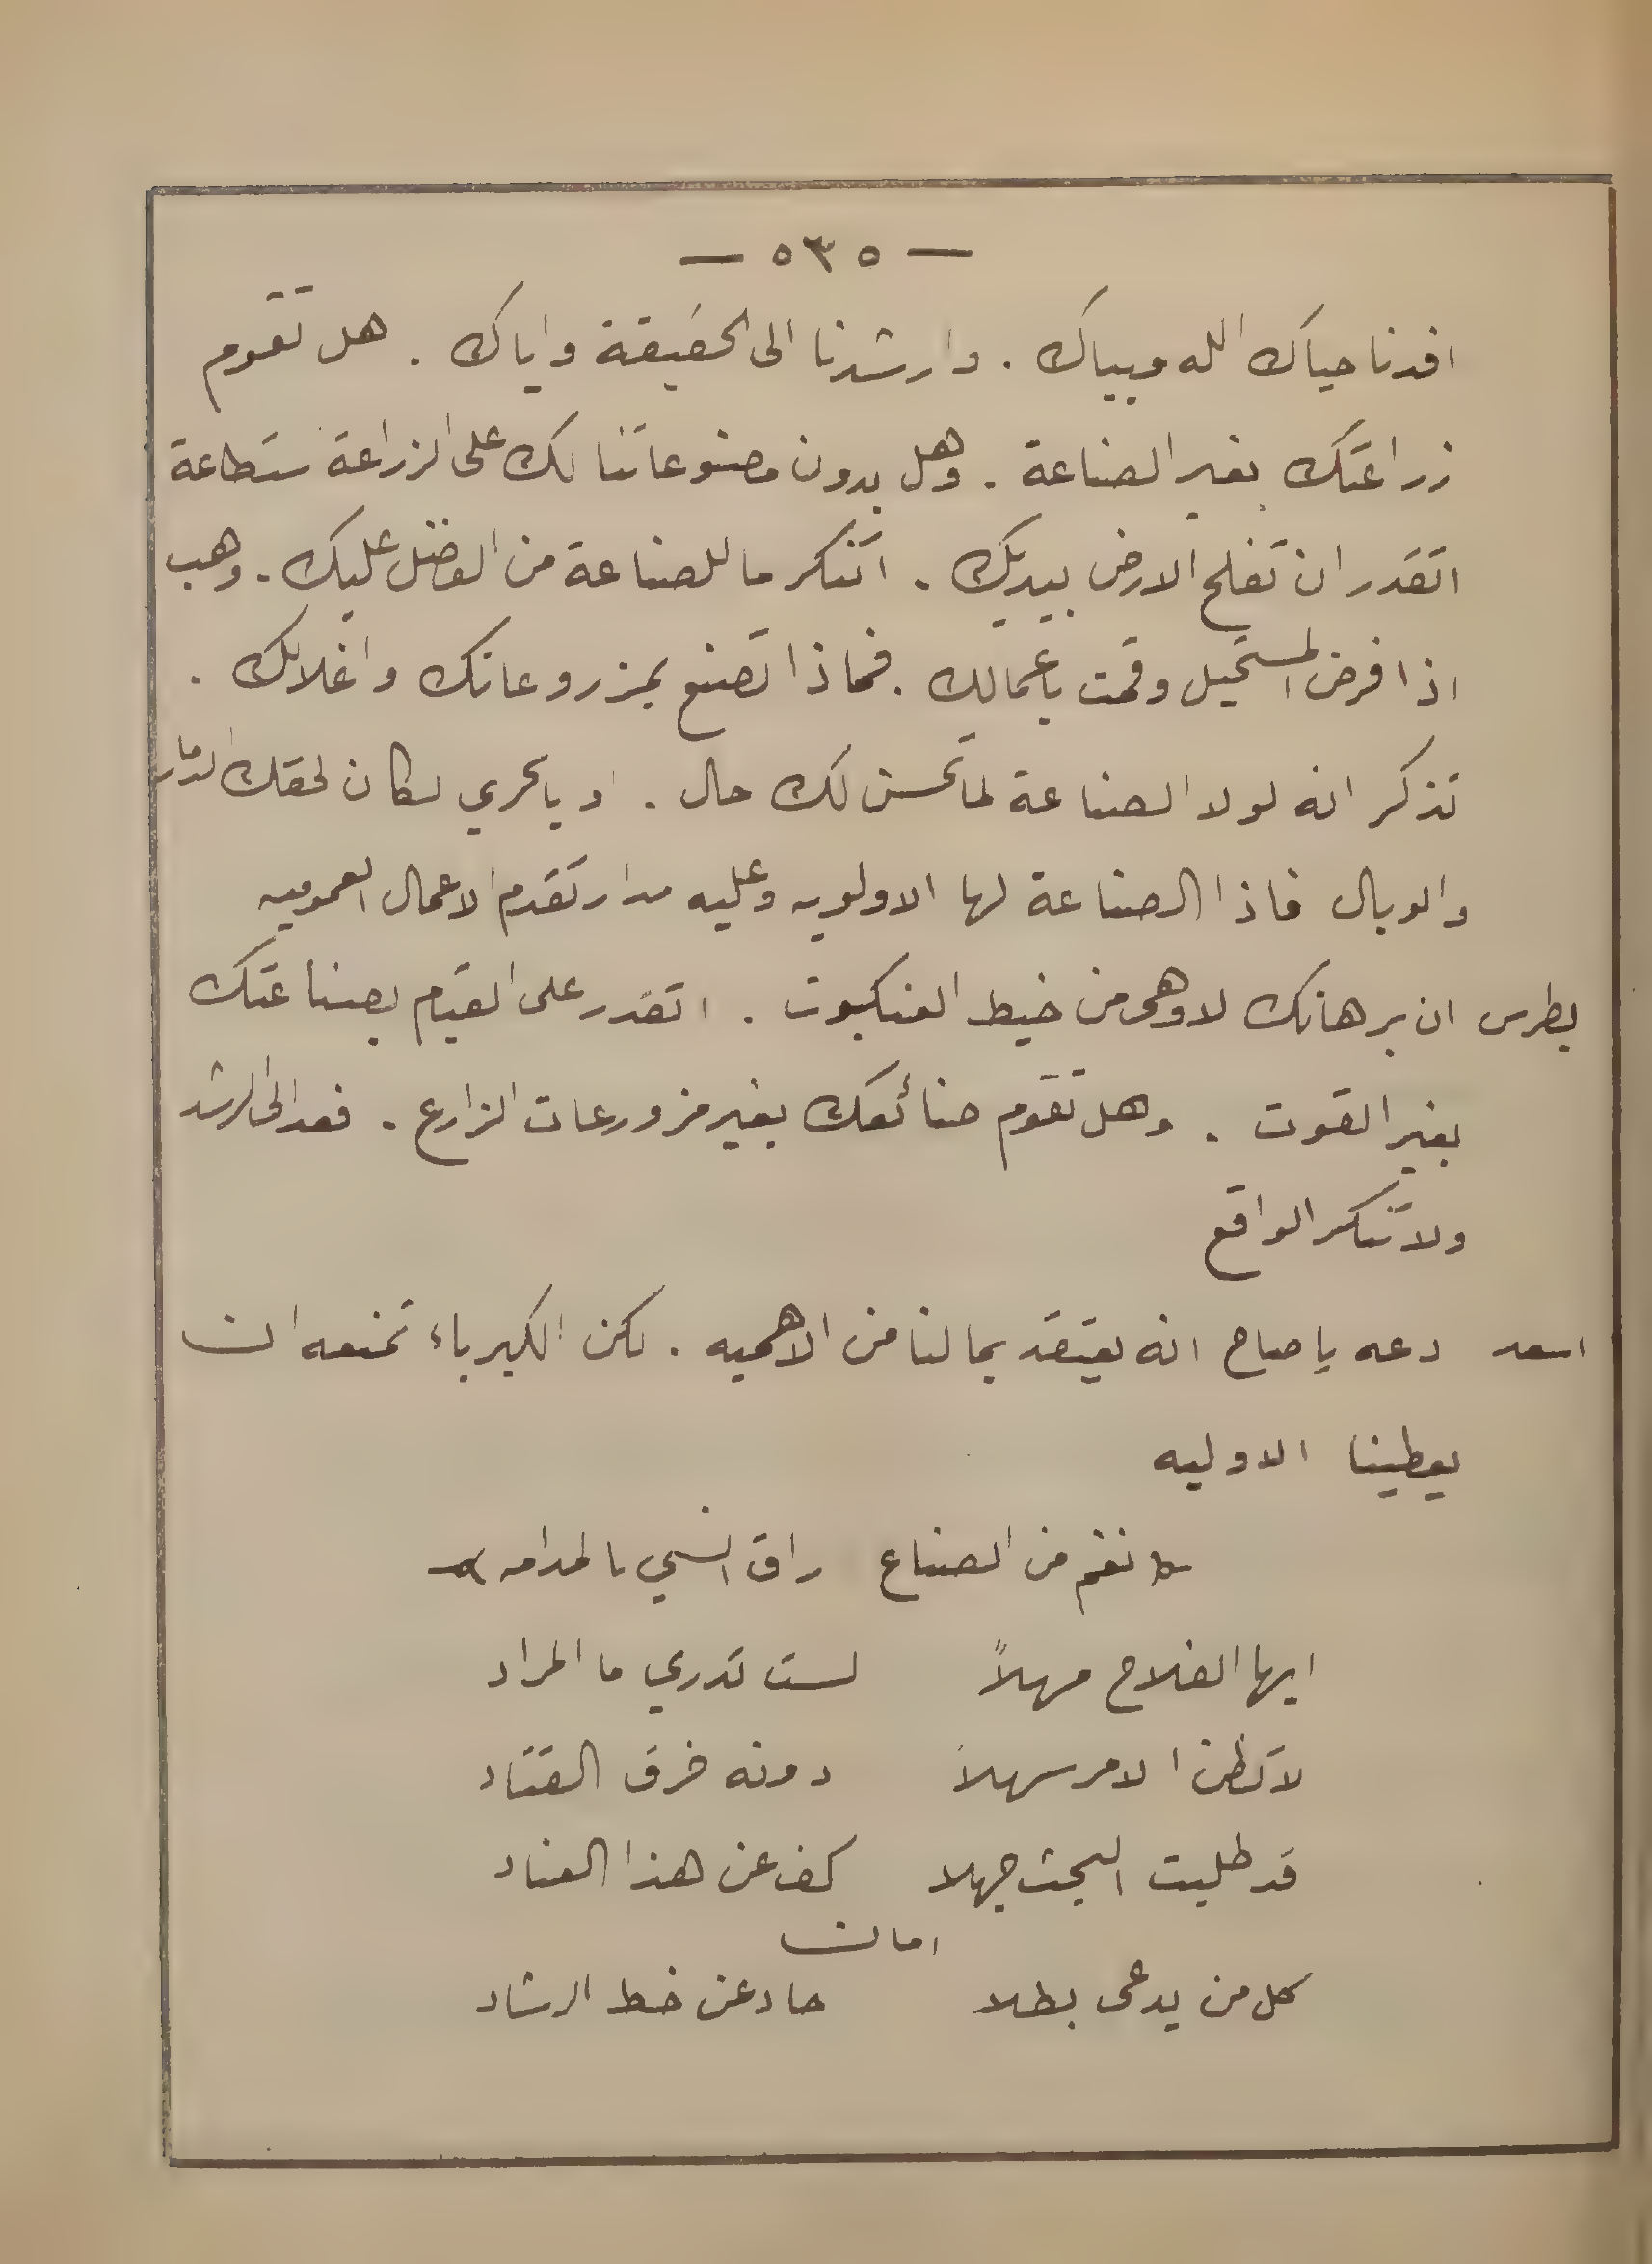 — ٥٣٥ —
افدنا حياك الله وبياك . وارشدنا الى الحقيقة واياك . هل تقوم
زراعتك بغير الصناعة . وهل بدون مصنوعاتنا لك على الزراعة ستطاعة
اتقدر ان تفلح الارض بيديك . اتنكر ما للصناعة من الفضل عليك . وهب
اذا فرض المستحيل وقمت باعمالك . فماذا تصنع بمزروعاتك واغلالك .
تذكر انه لولا الصناعة لما تحسن لك حال . او بالحري لكان لحقك الدمار
والوبال فاذا الصناعة لها الاولويه وعليه مدار تقدم الاعمال العموميه
بطرس ان برهانك لاوهى من خيط العنكبوت . اتقدر على القيام بصناعتك
بغير القوت . وهل تقوم صنائعك بغير مزروعات الزارع . فعد الى الرشد
ولا تنكر الواقع
اسعد دعه يا صاح انه يعتقد بما لنا من الاهميه . لكن الكبرياء تمنعه ان
يعطينا الاوليه
نغم من الصناع راق انسي بالمدامه
ايها الفلاح مهلاً لست تدري ما المراد
لا تظن الامر سهلاً دونه خرق القتاد
قد طلبت البحث جهلا كف عن هذا العناد
امان
كل من يدعى بطلا حاد عن خط الرشاد